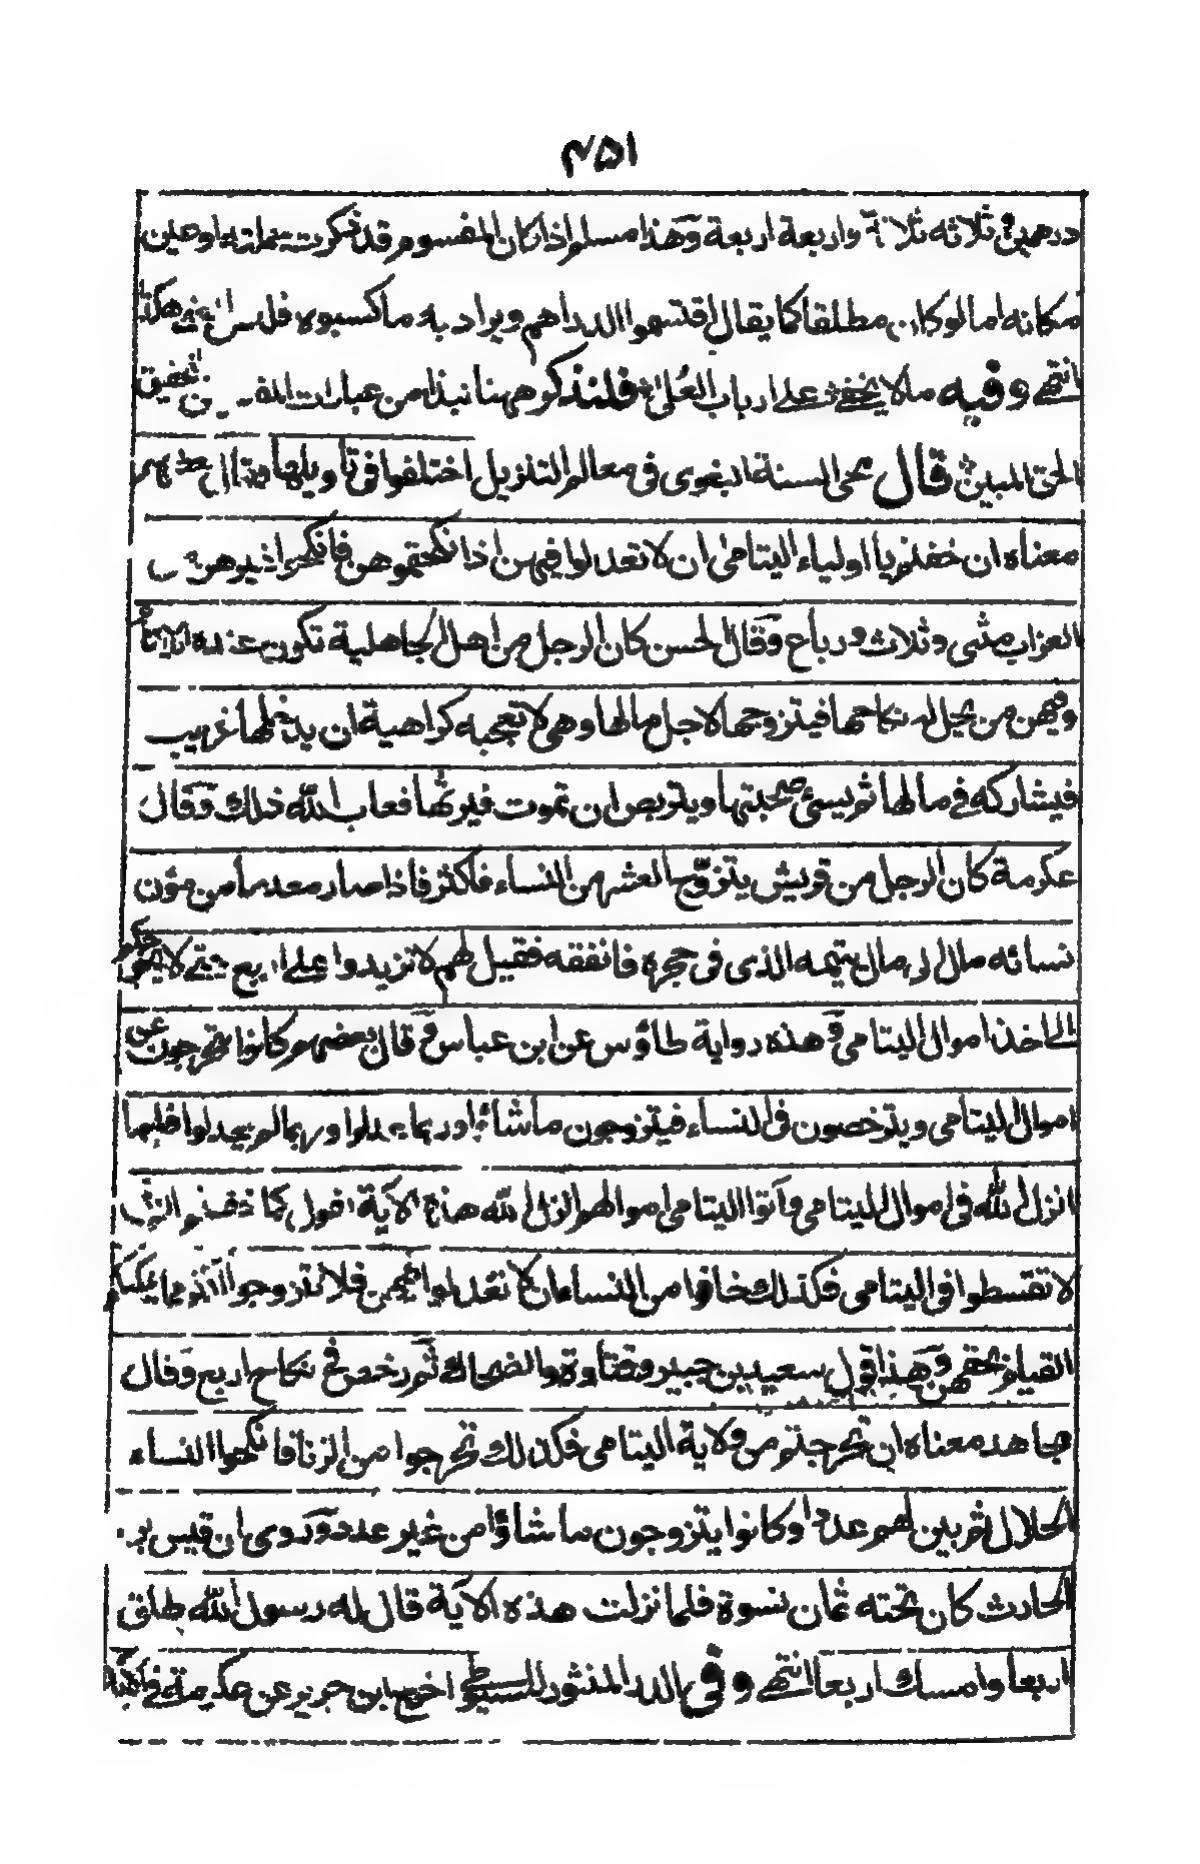 ٤٥١
درهمين وثلاثة ثلاثة واربعة اربعة وهذا مسلم اذا كان المقسوم قد ذكرت جملته او عين
مكانه اما لو كان مطلقا كما يقال اقتسموا الدراهم ويراد به ما كسبوه فليس هكذا
انتهى وفيه ما لا يخفى على ارباب العُلى فلنذكر ههنا نبذا من عبارات تحقيق
الحق المبين قال محى السنة البغوى فى معالم التنزيل اختلفوا فى تاويلها فقال بعضهم
معناه ان خفتم يا اولياء اليتامى ان لا تعدلوا فيهن اذا نكحتموهن فانكحوا غيرهن من
الغراب مثنى وثلاث ورباع وقال الحسن كان الرجل من اهل الجاهلية تكون عنده الايتام
وفيهن من يحل له نكاحها فيتزوجها لاجل مالها وهى لا تعجبه كراهية ان يدخلها غريب
فيشاركه فى مالها ثم يسئ صحبتها ويتربص ان تموت فيرثها فعاب الله ذلك وقال
عكرمة كان الرجل من قريش يتزوج العشر من النساء فاكثر فاذا صار معدما من مؤن
نسائه مال الى مال يتيمه الذى فى حجره فانفقه فقيل لهم لا تزيدوا على اربع حتى لا يحوجكم
الى اخذ اموال اليتامى وهذه رواية طاؤس عن ابن عباس وقال بعضهم كانوا يتحرجون عن
اموال اليتامى ويترخصون فى النساء فيتزوجون ما شاؤا وربما عدلوا وربما لم يعدلوا فلما
انزل الله فى اموال اليتامى وآتوا اليتامى اموالهم انزل الله هذه الآية يقول كما خفتم ان
لا تقسطوا فى اليتامى فكذلك خافوا من النساء ان لا تعدلوا فيهن فلا تتزوجوا اكثر مما يمكنكم
القيام بحقهن وهذا قول سعيد بن جبير وقتادة والضحاك ثم رخص فى نكاح اربع وقال
مجاهد معناه ان تحرجتم من ولاية اليتامى فكذلك تحرجوا من الزنا فانكحوا النساء
الحلال ثم بين لهم عددا وكانوا يتزوجون ما شاؤا من غير عدد وروى ان قيس بن
الحادث كان تحته ثمان نسوة فلما نزلت هذه الآية قال له رسول الله طلق
اربعا وامسك اربعا انتهى وفى الدر المنثور للسيوطى اخرج ابن جرير عن عكرمة فى الآية